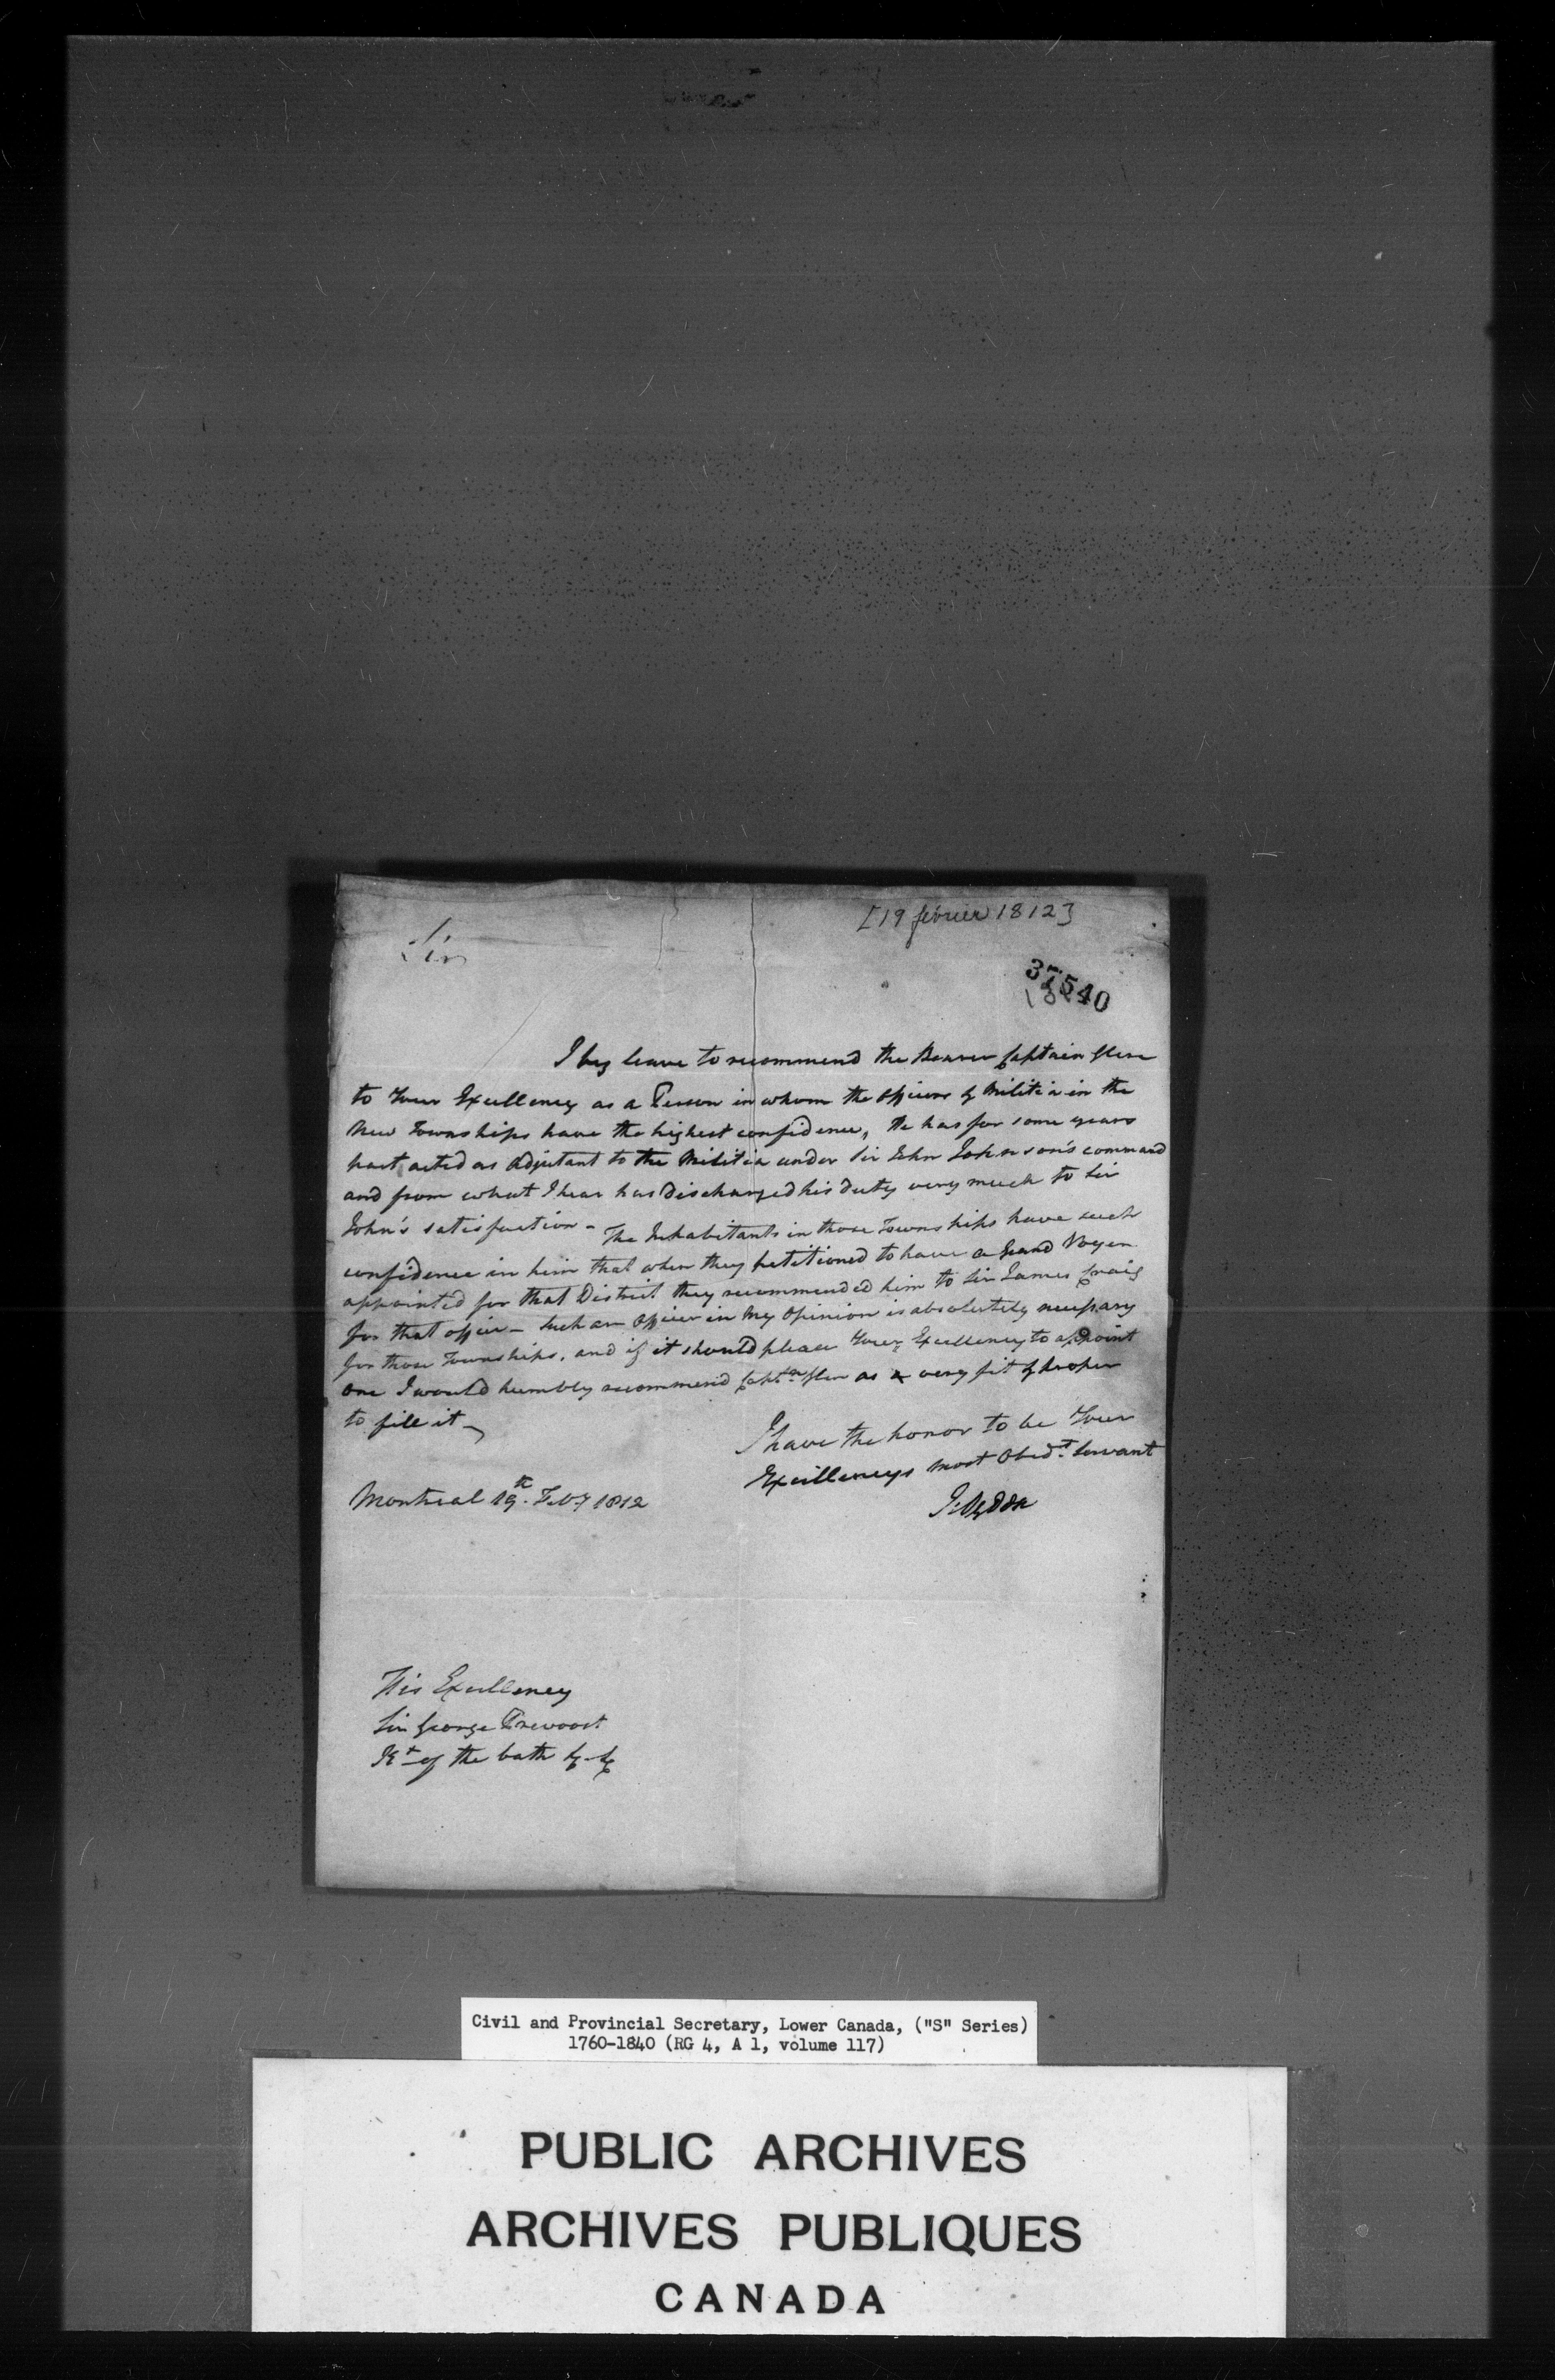 [19 février 1812]
Sir
37540
I beg leave to recommend the Bearer Captain
to Your Excellency as a Person in whom the officers of Militia in the
New Townships have the highest confidence, He has for some years
past acted as Adjutant to the Militia under Sir John Johnson's command
and from what I hear has discharged his duty very much to Sir
John's satisfaction - The Inhabitants in those Townships have such
confidence in him that when they petitioned to have a Grand Voyer
appointed for that District they recommended him to Sir James Craig
for that office - Such an officer in my opinion is absolutely necessary
for those Townships, and if it should please Your Excellency to appoint
one I would humbly recommend Captn as a very fit & proper
to fill it -
I have the honor to be Your
Excellencys most Obedt. Servant
I: Ogden
Montreal 19th. Feby 1812
His Excellency
Sir George Prevoost
Kt of the bath &c &c
Civil and Provincial Secretary, Lower Canada, ("S" Series)
1760-1840 (RG 4, A 1, volume 117)
PUBLIC ARCHIVES
ARCHIVES PUBLIQUES
CANADA